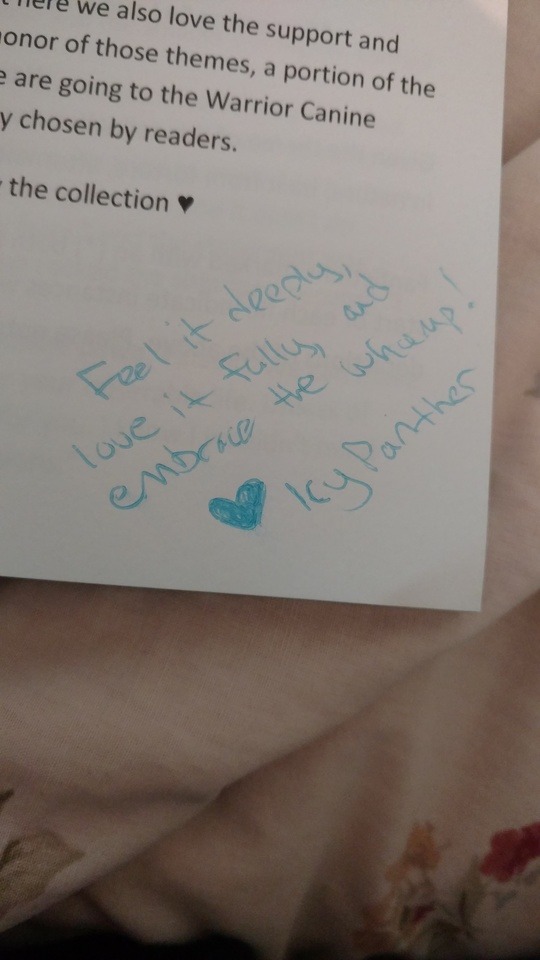 here we also love the support and
onor of those themes, a portion of the
e are going to the Warrior Canine
y chosen by readers.
the collection ♥
Feel it deeply,
love it fully, and
embrace the whump!
♥ Icy Panther